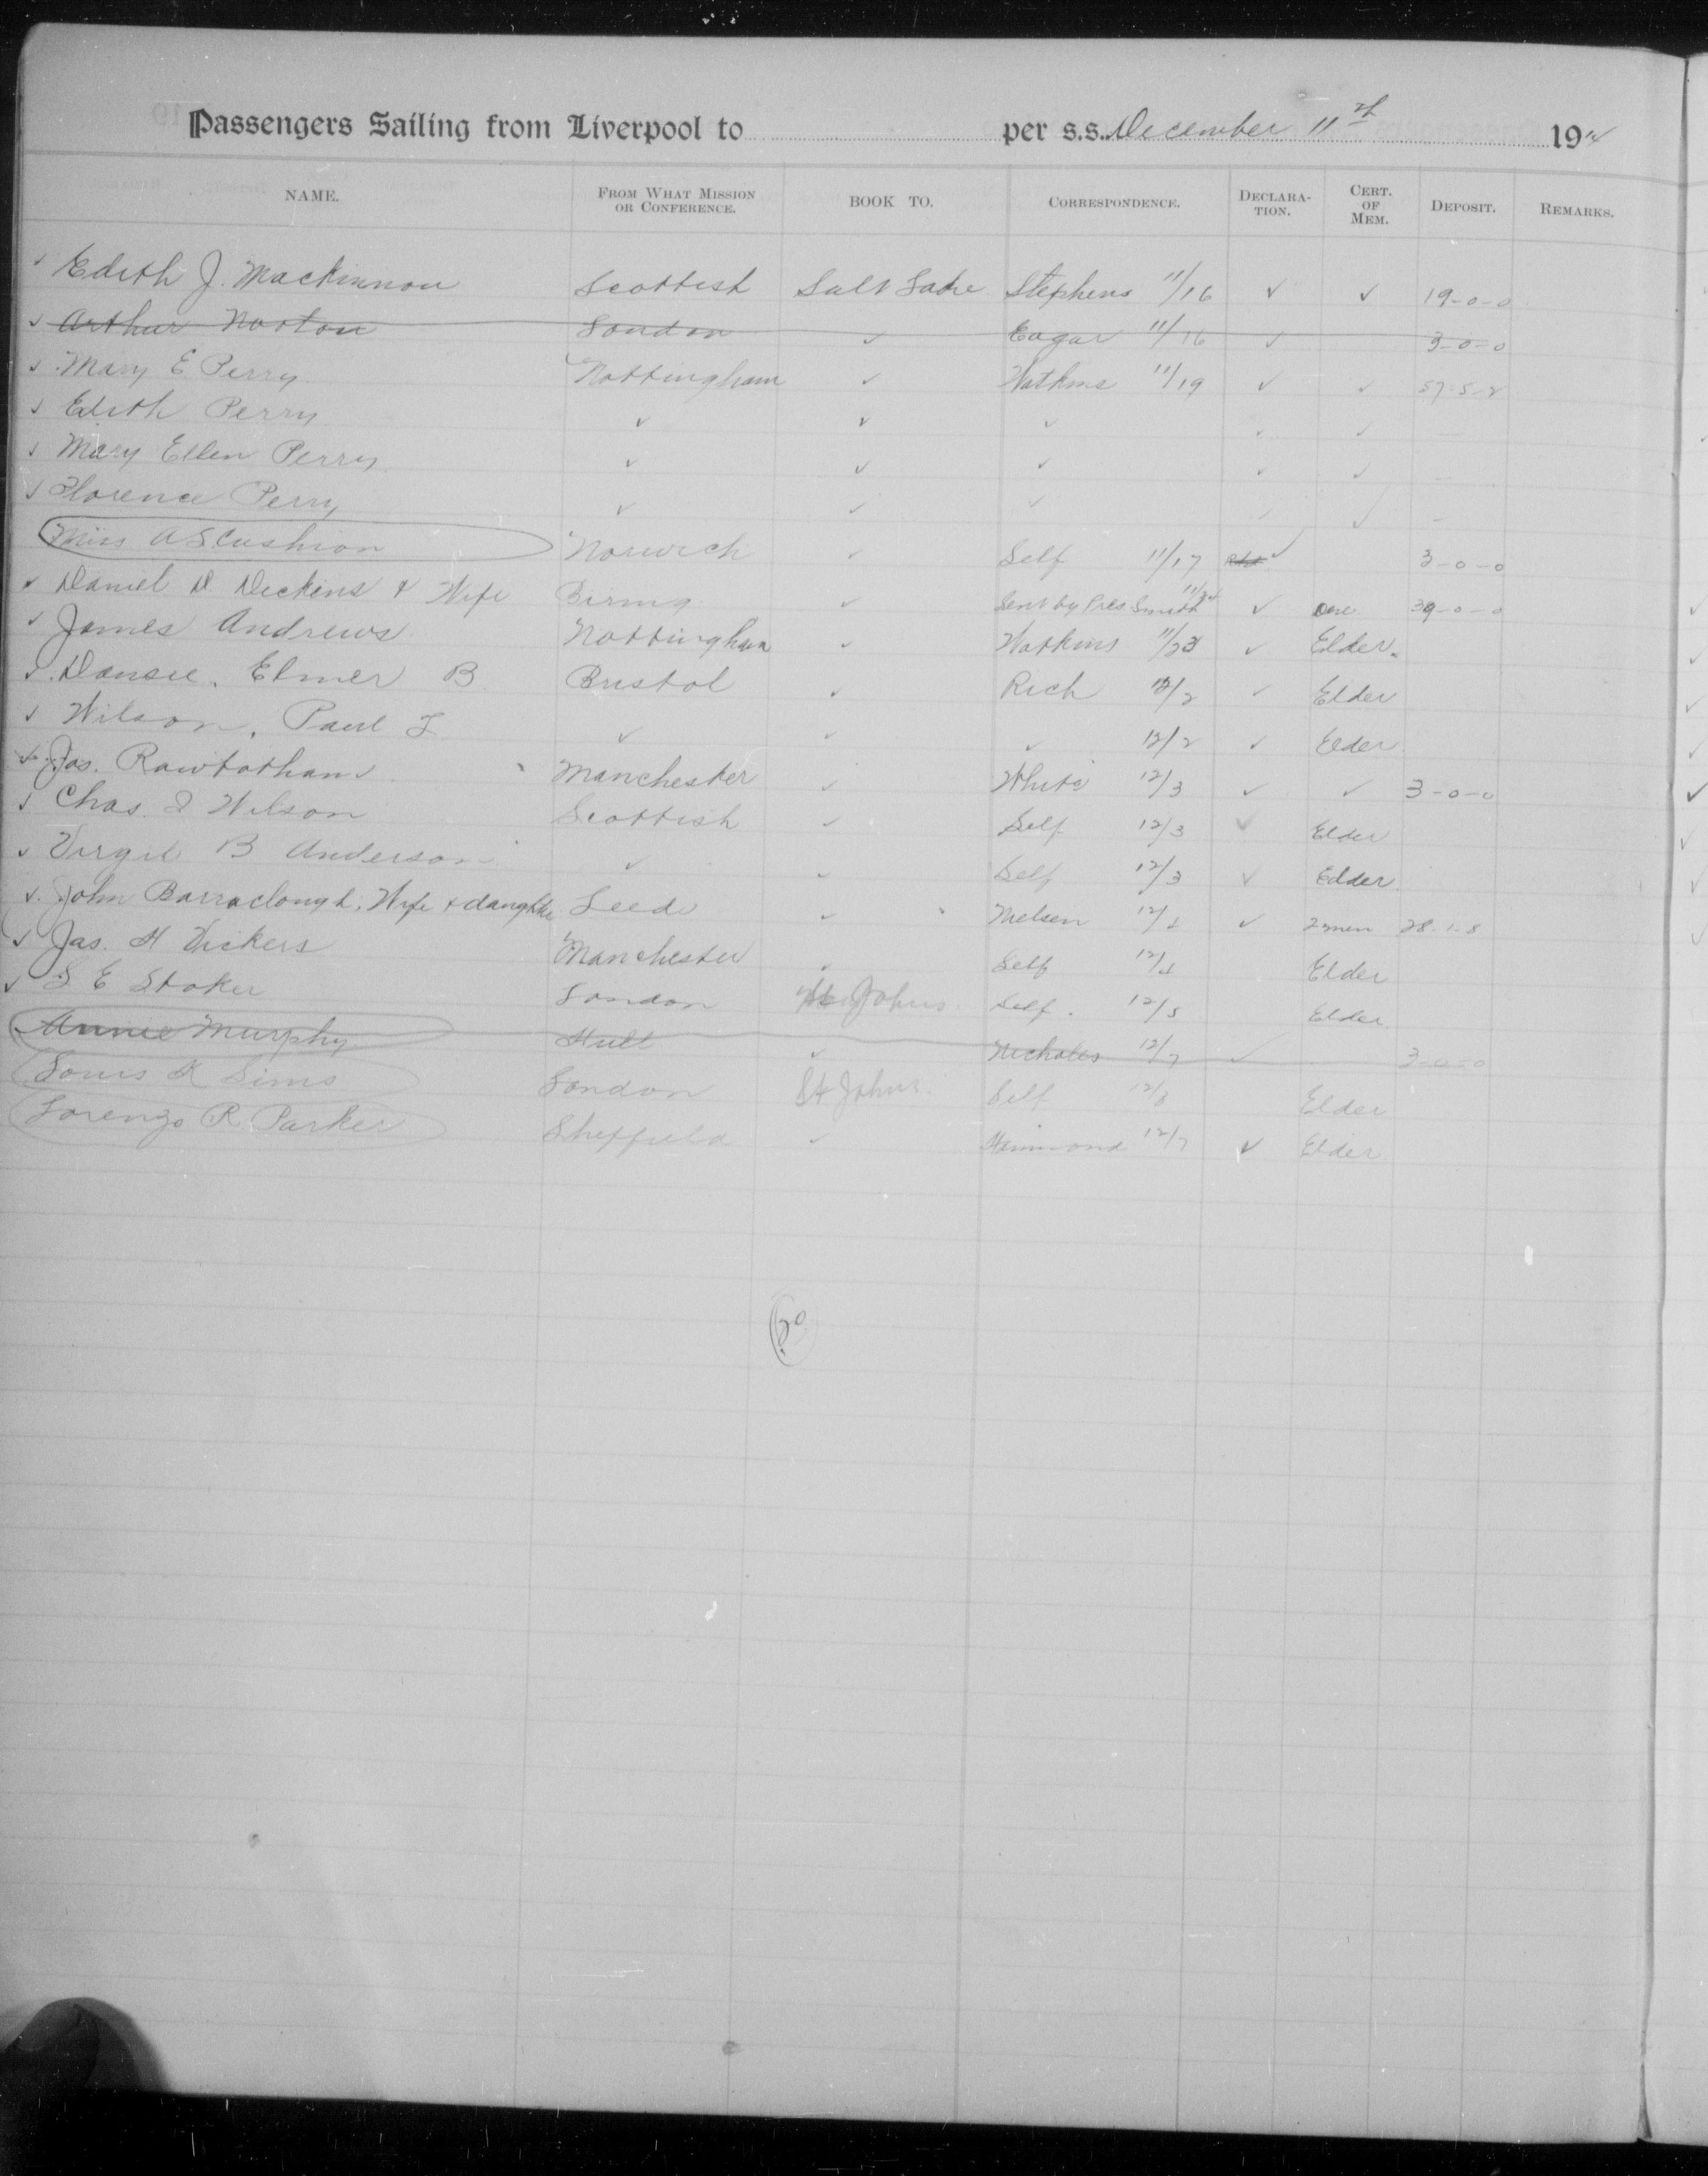 Passengers Sailing from Liverpool to per s.s. December 11th 1914
NAME. FROM WHAT MISSION OR CONFERENCE. BOOK TO. CORRESPONDENCE. DECLARATION. CERT. OF MEM. DEPOSIT. REMARKS.
✓ Edith J. Mackinnon Scottish Salt Lake Stephens 11/16 ✓ ✓ 19-0-0
✓ Arthur Norton London ✓ Eagar 11/16 ✓ 3-0-0
✓ Mary E. Perry Nottingham ✓ Watkins 11/19 ✓ ✓ 57-5-2
✓ Edith Perry ✓ ✓ ✓ ✓ ✓ -
✓ Mary Ellen Perry ✓ ✓ ✓ ✓ ✓ -
✓ Florence Perry ✓ ✓ ✓ ✓ ✓ -
Miss A S Cushion Norwich ✓ Self 11/17 ✓ 3-0-0
✓ Daniel D. Dickens & Wife Birmg ✓ Sent by Pres. Smith ✓ One 39-0-0
✓ James Andrews Nottingham ✓ Watkins 11/23 ✓ Elder.
✓ Dansie, Elmer B Bristol ✓ Rich 12/2 ✓ Elder
✓ Wilson, Paul ✓ ✓ ✓ 12/2 ✓ Elder
✓ Jas. Rawbotham Manchester ✓ White 12/3 ✓ ✓ 3-0-0
✓ Chas. Wilson Scottish ✓ Self 12/3 ✓ Elder
✓ Virgil B Anderson ✓ ✓ Self 12/3 ✓ Elder
✓ John Barraclough, Wife & daughter Leeds ✓ Nielsen ✓ 2 mem 28-1-8
✓ Jas. H Vickers Manchester ✓ Self Elder
✓ S E Stoker London St Johns Self. 12/5 Elder
Annie Murphy Hull ✓ Nicholes 12/7 ✓ 3-0-0
Louis K Sims London St Johns Self 12/8 Elder
Lorenzo R Parker Sheffield ✓ Hammond 12/7 ✓ Elder